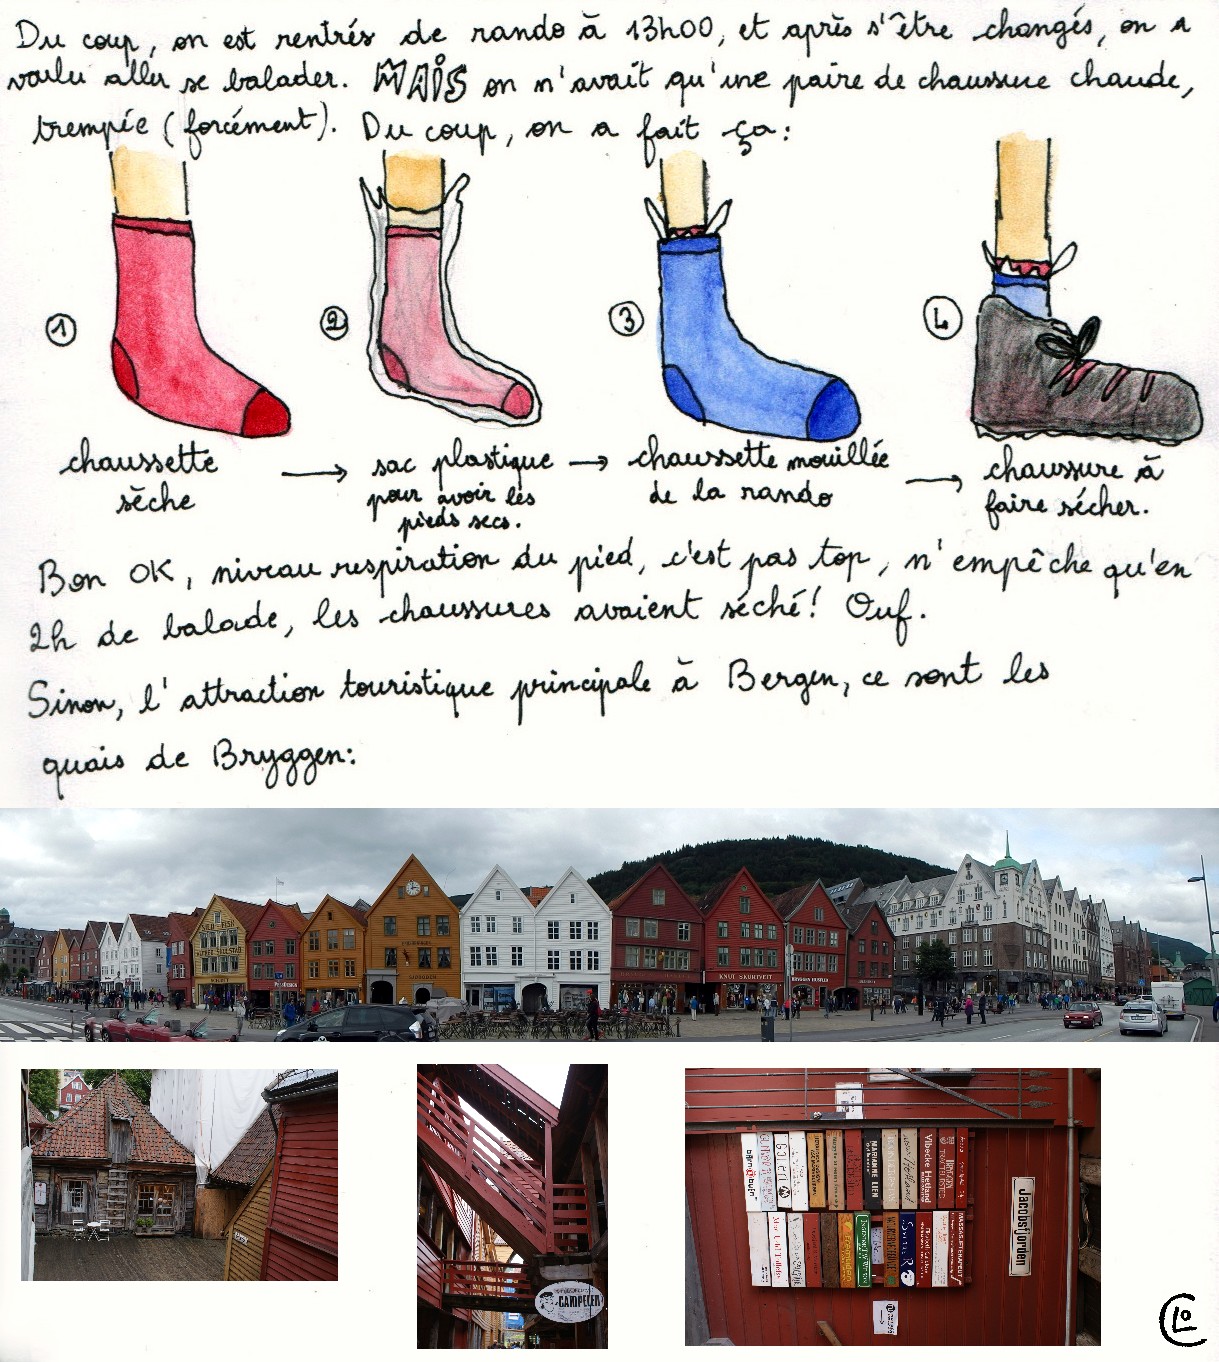 Du coup, on est rentrés de rando à 13h00, et après s'être changés, on a
voulu aller se balader. MAIS on n'avait qu'une paire de chaussure chaude,
trempée (forcément). Du coup, on a fait ça:
1
2
3
4
chaussette
sèche
sac plastique
pour avoir les
pieds secs.
chaussette mouillée
de la rando
chaussure à
faire sécher.
Bon OK, niveau respiration du pied, c'est pas top, n'empêche qu'en
2h de balade, les chaussures avaient séché! Ouf.
Sinon, l'attraction touristique principale à Bergen, ce sont les
quais de Bryggen:
KNUT SKURTVEIT
CAMPELEN
MARIANNE LIEN
Vibeke Hetland
Jacobsfjorden
CLO